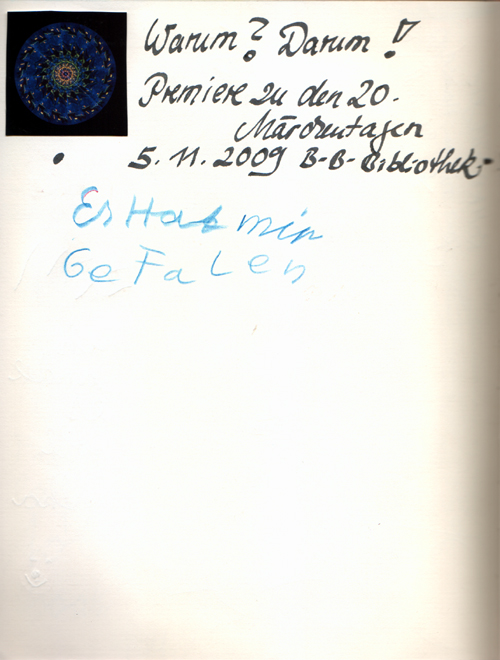 Warum? Darum!
Premiere zu den 20.
Märchentagen
• 5.11.2009 B-B-Bibliothek-
Es Hat mir
GeFaLen